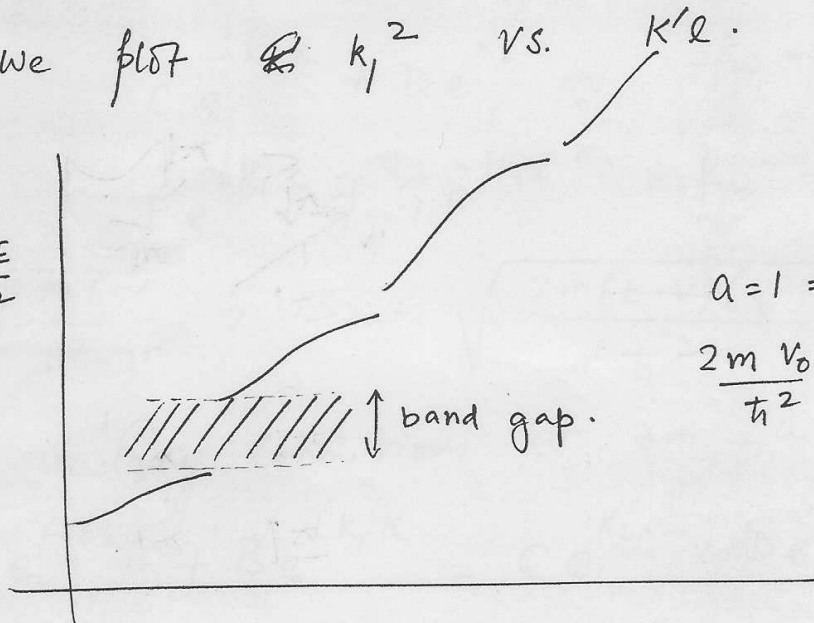 We plot k₁² vs. K'l.
E
2
a = 1 =
2m V₀
ħ²
band gap.